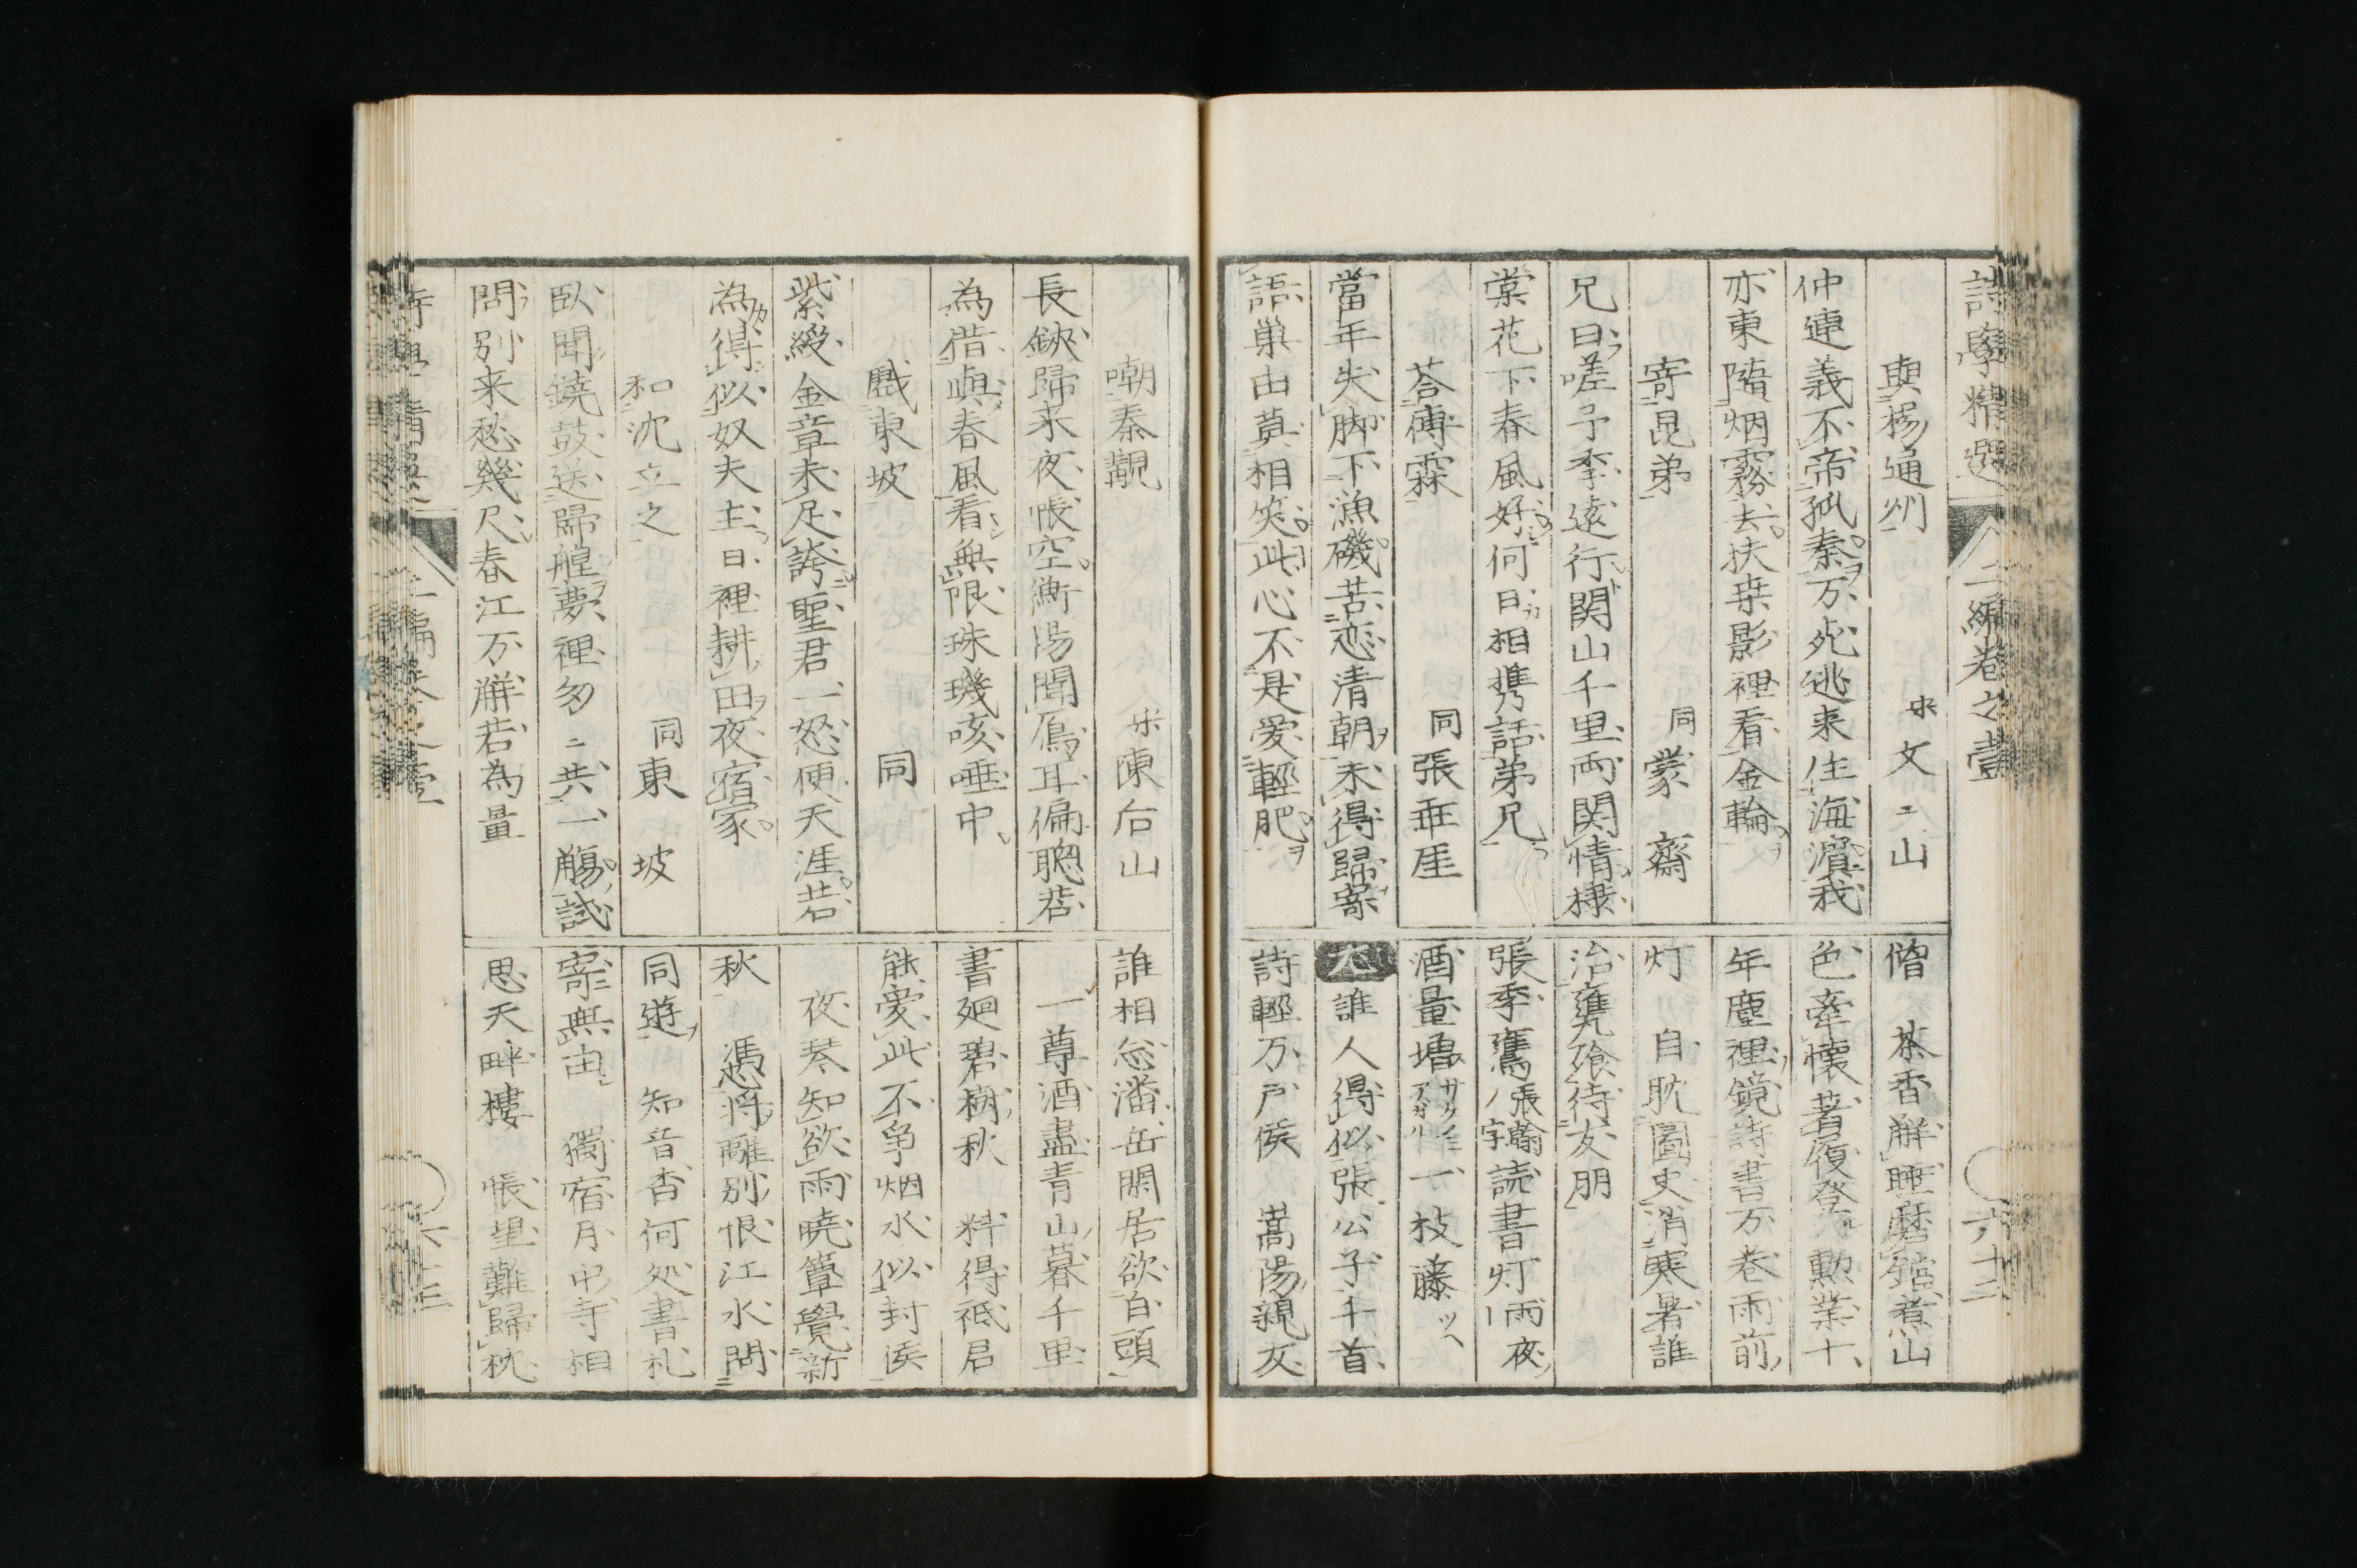 詩學精選 二編卷之壹 六十三
與楊通州 宋文々山
仲連義不帝孤秦万死逃来住海濵我
亦東隨烟霧去扶桒影裡看金輪
寄昆弟 同蒙齋
兄曰嗟予季遠行関山千里両関情棣
棠花下春風好何日相携話弟兄
荅傅霖 同張乖厓
當年失脚下漁磯苦恋清朝未得歸寄
語巢由莫相笑此心不是愛輕肥
僧 茶香解睡磨鐺煮山
色牽懐著履登 勲業十
年塵裡鏡詩書万巻雨前
灯 自耽圖史消寒暑誰
治甕飱待友朋
張季鷹張翰字読書灯雨夜
酒量増サケノミアガル一枝藤ツヘ
尤 誰人得似張公子千首
詩輕万戸侯 嵩陽親友
嘲秦覯 宋陳后山
長鋏歸来夜帳空衡陽聞鴈耳偏聰若
為借與春風看無限珠璣咳唾中
戲東坡 同
紫綬金章未足誇聖君一怒便天涯若
為得似奴夫主日裡耕田夜宿家
和沈立之 同東坡
臥聞鐃鼓送歸艎夢裡匆々共一觴試
問別来愁幾尺春江万斛若為量
誰相忩潘岳閑居欲白頭
一尊酒盡青山暮千里
書廻碧樹秋 料得祗君
能愛此不爭烟水似封侯
夜琴知欲雨曉簟覺新
秋 馮将離別恨江水問
同遊 知音杳何処書札
寄無由 獨宿月中寺相
思天畔樓 悵望難歸枕